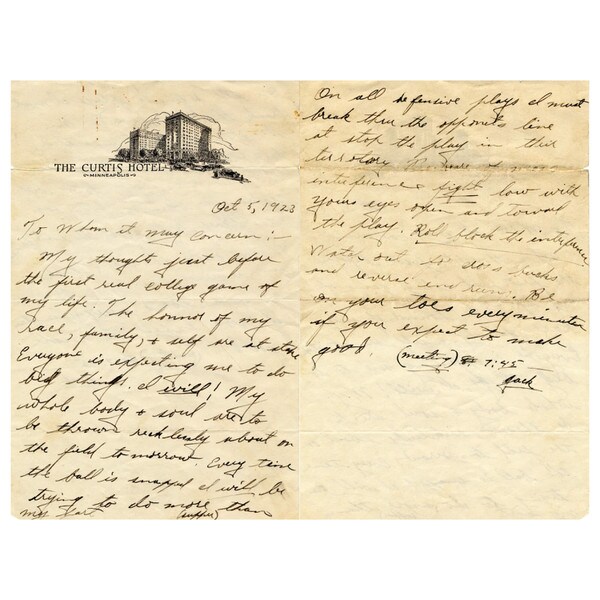 THE CURTIS HOTEL
MINNEAPOLIS
Oct 5, 1923
To Whom it may concern:-
My thoughts just before
the first real college game of
my life. The honnor of my
race, family, & self are at stake
Everyone is expecting me to do
big things. I will! My
whole body & soul are to
be thrown recklessly about on
the field tomorrow. Every time
the ball is snapped I will be
trying to do more than
my part
(supper)
On all defensive plays I must
break thru the opponets line
at stop the play in their
territory. Beware of mass
interference fight low with
yours eyes open and toward
the play. Roll block the interference
Watch out for cross bucks
and reverse end runs. Be
on your toes every minute
if you expect to make
good. (meeting) 7:45
Jack